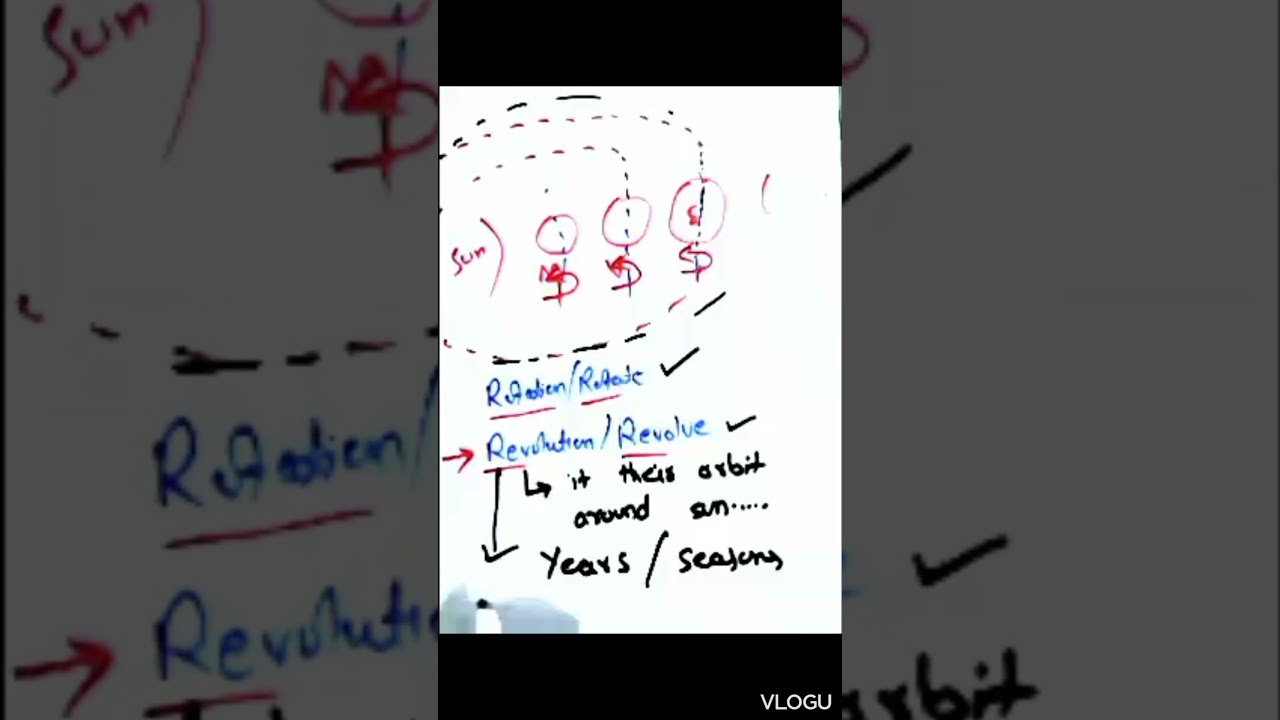 Sun
Rotation/Rotate
Revolution/Revolve
it their orbit
around sun.....
Years/seasons
VLOGU